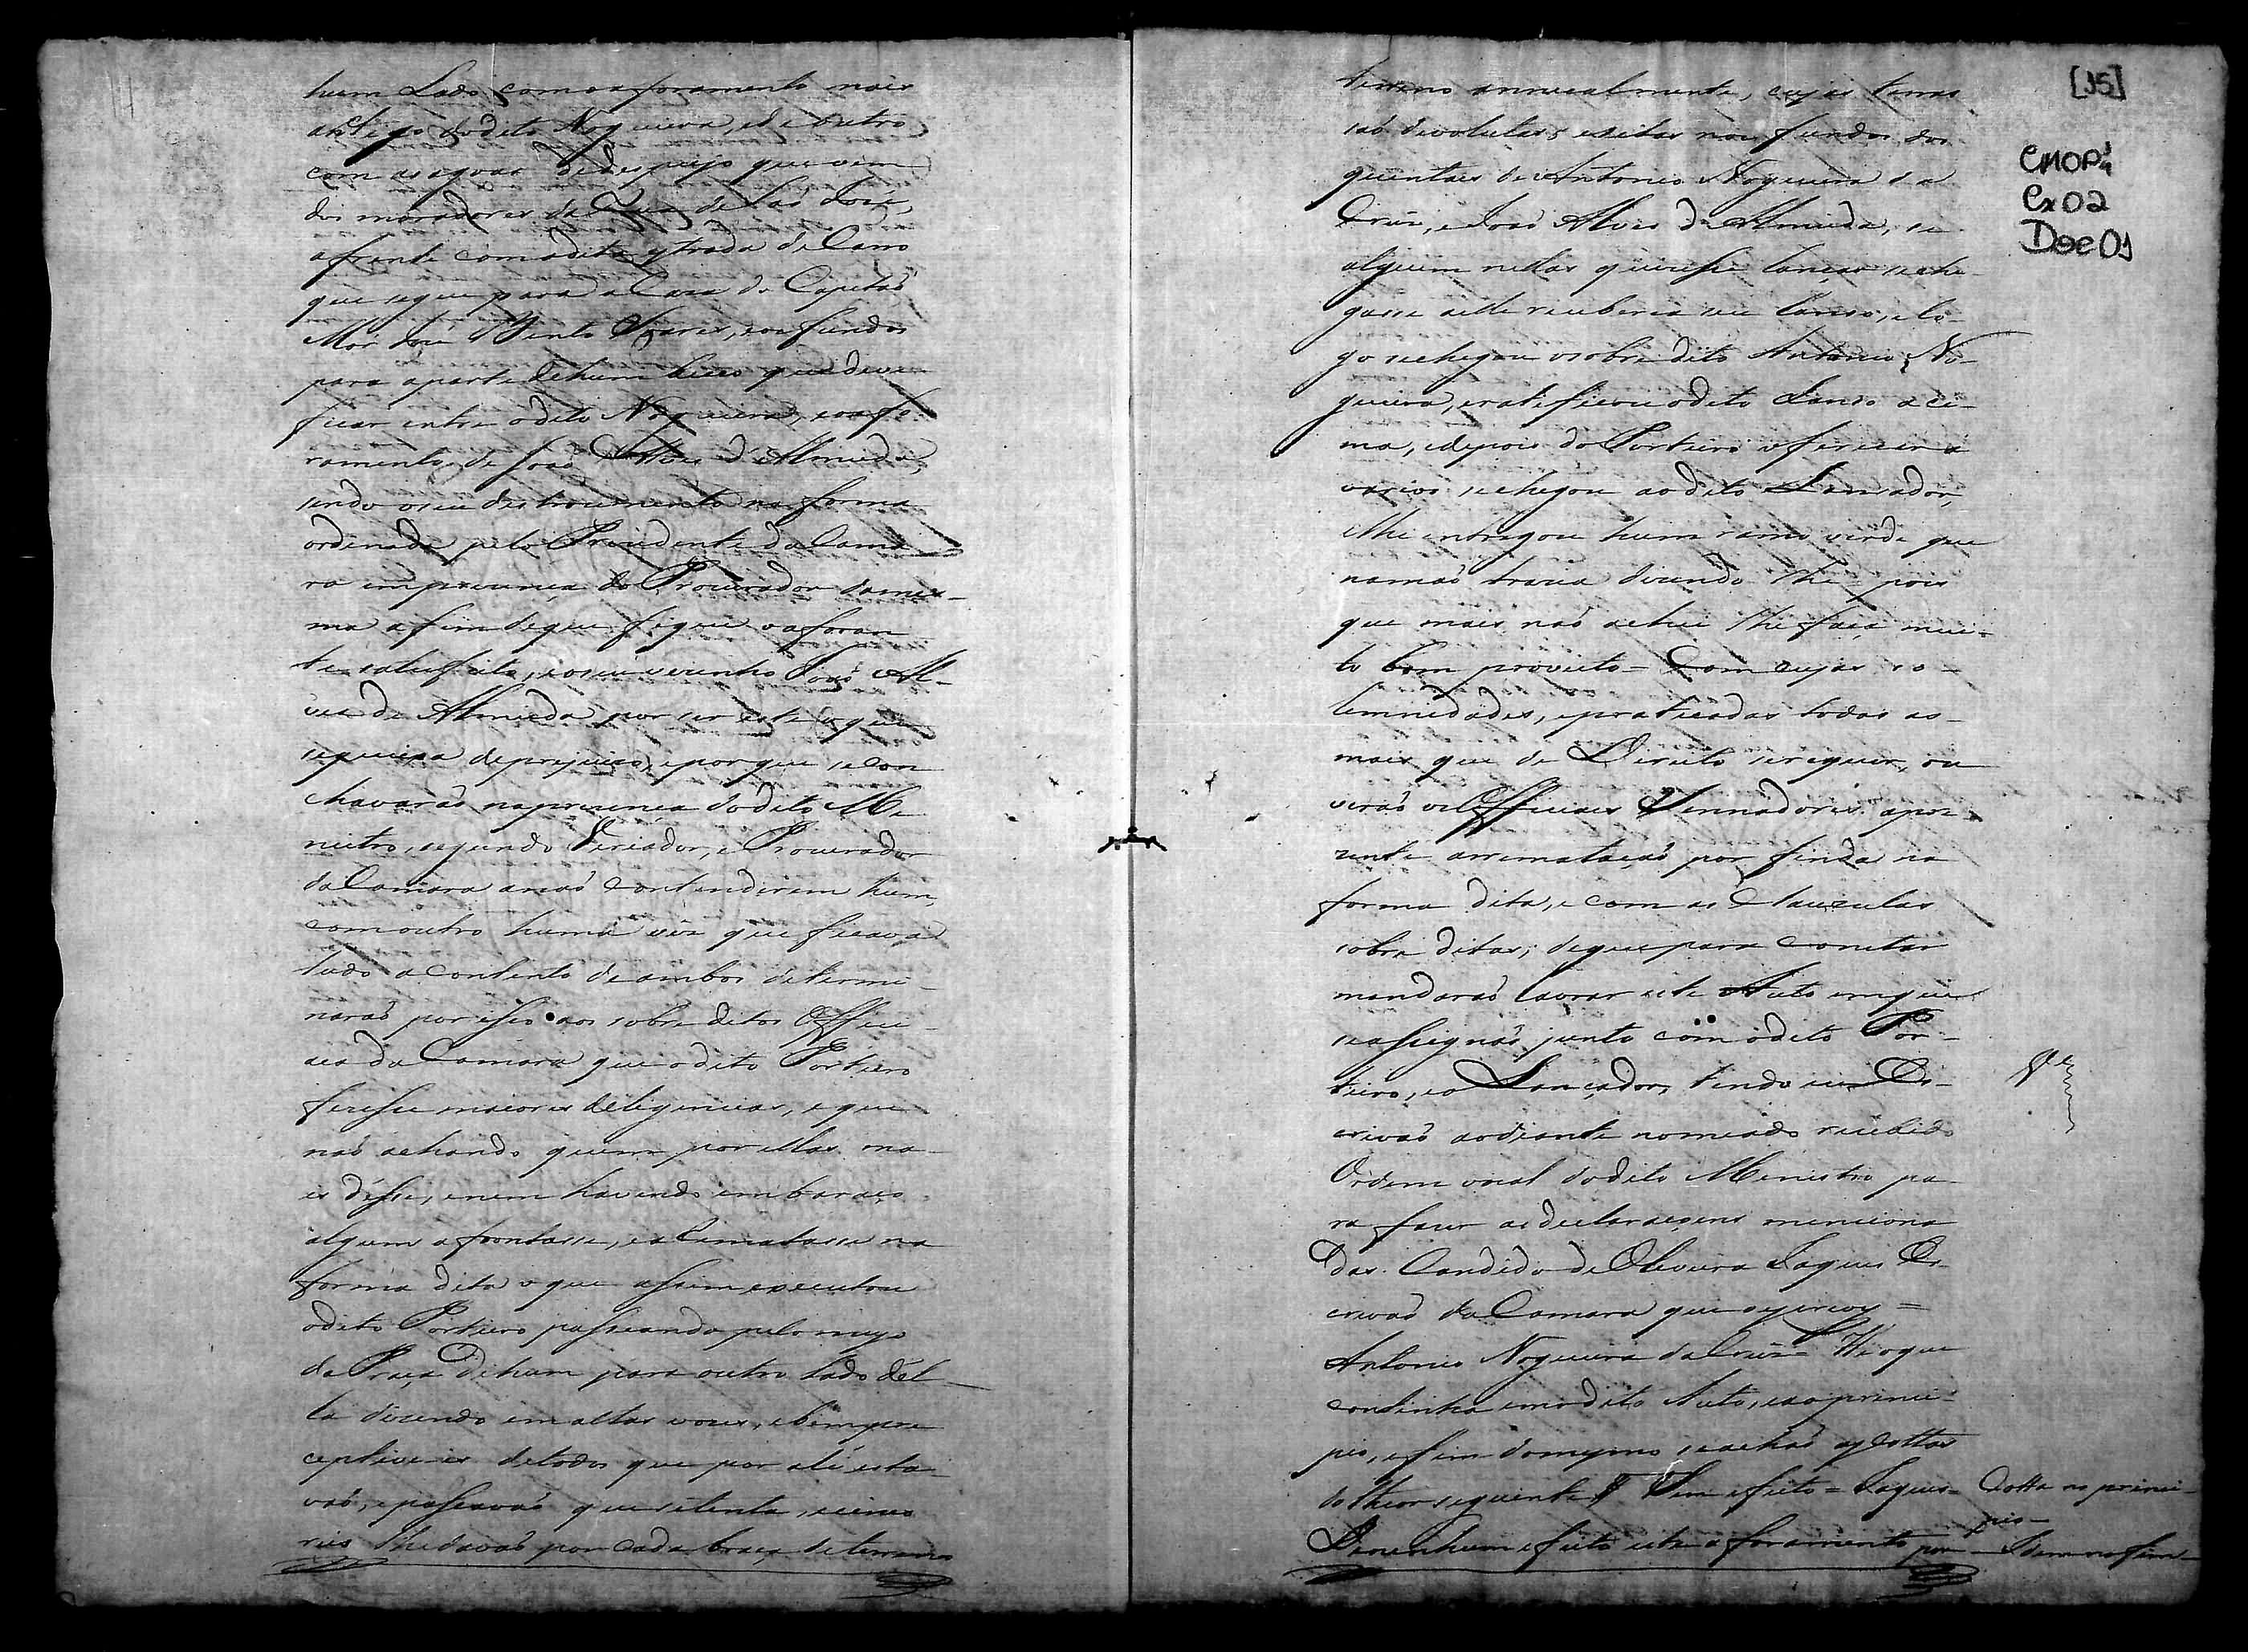 hum Lado com o aforamento mais
antigo do dito Nogueira, e de outro
com as agoas de despejo que vem
dos moradores da de Saõ José,
a frente com a dita estrada de Carro
que segue para a Casa do Capitaõ
Mór José Bento Soares, e os fundos
para a parte de hum beco que deve
ficar entre o dito Nogueira, e o afo-
ramento de Joaõ Alves d'Almeida,
sendo o seu destroncamento na forma
ordenada pelo Presidente da Cama
ra em presença do Procurador da mes-
ma a fim de que fique o aforan
te satisfeito, e o seu vesinho Joaõ Al-
ves de Almeida por ser este o que
se queixa de prejuiso, e por que se con
chavaraõ na presença do dito Mi
nistro, segundo Veriador, e Procurador
da Camara a naõ contenderem hum
com outro huma vez que ficava
tudo a contento de ambos determi-
naraõ por isso aos sobre ditos Offici-
aes da Camara que o dito Porteiro
fizesse maiores deligencias, e que
naõ achando quem por ellas ma-
is désse, e nem havendo embaraço
algum afrontasse, e arematasse na
forma dita o que assim executou
o dito Porteiro passeando pelo meyo
da Praça de hum para outro lado del-
la dizendo em altas vozes, e bem per
ceptiveis de todos que por ali esta
vaõ, e passavaõ que setenta, e cinco
reis lhe davaõ por cada braça de terreno
terreno annualmente, cujas terras
saõ devolutas, e sitas nos fundos dos
quintaes de Antonio Nogueira da
Cruz, e Joaõ Alves de Almeida, se
alguem nellas quizesse lançar se che-
gasse a elle receberia seu lanso, e lo-
go se chegou o sobre dito Antonio No-
gueira, e ratificou o dito Lanso aci-
ma, e depois do Porteiro oferecer a
varios se chegou ao dito Lansador,
e lhe entregou hum ramo verde que
na maõ trazia dizendo lhe pois
que mais naõ achei lhe faça mui-
to bom proveito = Com cujas so-
lemnidades, e praticadas todas as
mais que de Direito se requer, ou
veraõ os Officiaes Vennadores a prez-
zente arremataçaõ por finda na
forma dita, e com as Clausulas
sobre ditas; de que para constar
mandaraõ lavrar este Auto em que
se assignaõ junto com o dito Por-
teiro, e o Lançador, tendo eu Es-
crivaõ ao diante nomeado recebido
Ordem vocal do dito Ministro pa-
ra fazer as declaraçoens menciona
das. Candido de Oliveira Jaques Es-
crivaõ da Camara que escrevy =
Antonio Nogueira da Cruz = Hé o que
continha em o dito Auto, e ao princi-
pio, e fim do mesmo se achaõ as Cottas
do theor seguinte Sem efeito = Jaques =
De nenhum efeito este aforamento por
[15]
CMOP
Cx 02
Doc 01
Cotta no princi-
pio -
Idem no fim -